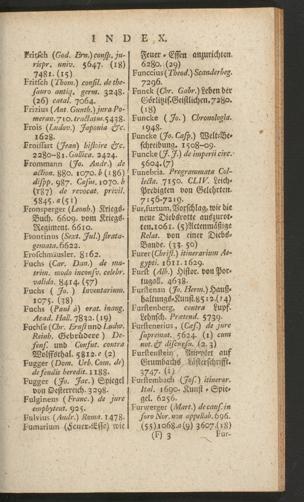 INDEX.
Fritsch (God. Ern.) consp. ju-
rispr. univ. 5647. (18)
7481. (15)
Fritsch (Thom.) consil. de the-
sauro antiq. germ. 3248.
(26) catal. 7064.
Frizius (Ant. Gunth.) jura Po-
meran. 710. tractatus. 5438.
Frois (Ludov.) Japonia &c.
1628.
Froissart (Jean) histoire &c.
2280-81. Gallice. 2424.
Frommann (Jo. Andr.) de
action. 880. 1070. b (186)
disp. 987. Casus, 1070. b
(187) de revocat. privil.
5845. a (51)
Fronsperger (Leonh.) Kriegs-
Buch. 6609. vom Kriegs-
Regiment. 6610.
Frontinus (Sext. Jul.) strata-
gemata. 6622.
Froschmäusler. 8162.
Fuchs (Car. Dan.) de ma-
trim. modo inconsv. celebr.
valido. 8414. (57)
Fuchs (Jo.) Inventarium.
1075. (38)
Fuchs (Paul à) orat. inaug.
Acad. Hall. 7832. (19)
Fuchse (Chr. Ernst und Ludw.
Reinh. Gebrüdere) De-
fens. und Confut. contra
Wolffthal. 5812. r (2)
Fugger (Dom. Ueb. Com. de)
de feudis beredit. 1188.
Fugger (Jo. Jac.) Spiegel
von Oesterreich. 3298.
Fulgineus (Franc.) de jure
emphyteut. 925.
Fulvius (Andr.) Roma. 1478.
Fumarium (Feuer-Esse) wie
Feuer-Essen anzurichten.
6280. (29)
Funccius (Theod.) Scanderbeg.
7296.
Funck (Chr. Gabr.) Leben der
Görlitzis. Geistlichen. 7280.
(18)
Funcke (Jo.) Chronologia.
1948.
Funcke (Jo. Casp.) Welt-Be-
schreibung. 1508-09.
Funcke (J. J.) de imperii circ.
5604. (7)
Funebria. Programmata Col-
lecta. 7150. CLIV. Leich-
Predigten von Gelehrten.
7155-7219.
Fur, furtum, Vorschlag, wie die
neue Diebsrotte auszurot-
ten. 1061. (5) Actenmäßige
Relat. von einer Diebs-
Bande. (33. 50)
Furer (Christ.) itinerarium Ae-
gypti. 1611. 1629.
Furst (Alb.) Histor. von Por-
tugall. 4638.
Furstenau (Jo. Herm.) Hauß-
haltungs-Kunst. 8512. (14)
Furstenberg, contra Lupf-
Lehnsch. Protend. 5739.
Furstenerius, (Caes.) de jure
supremat. 5624. (1) cum
not. & disensu. (2. 3)
Furstenstein, Antwort auf
Grumbachs Lösterschrifft.
3747. (1)
Furstembach (Jos.) itinerar.
Ital. 1690. Kunst-Spie-
gel. 6256.
Furwerger (Mart.) de caus. in
foro Nor. non appellab. 696.
(55) 1068. a (9) 3607. (18)
(F) 3
Fur-